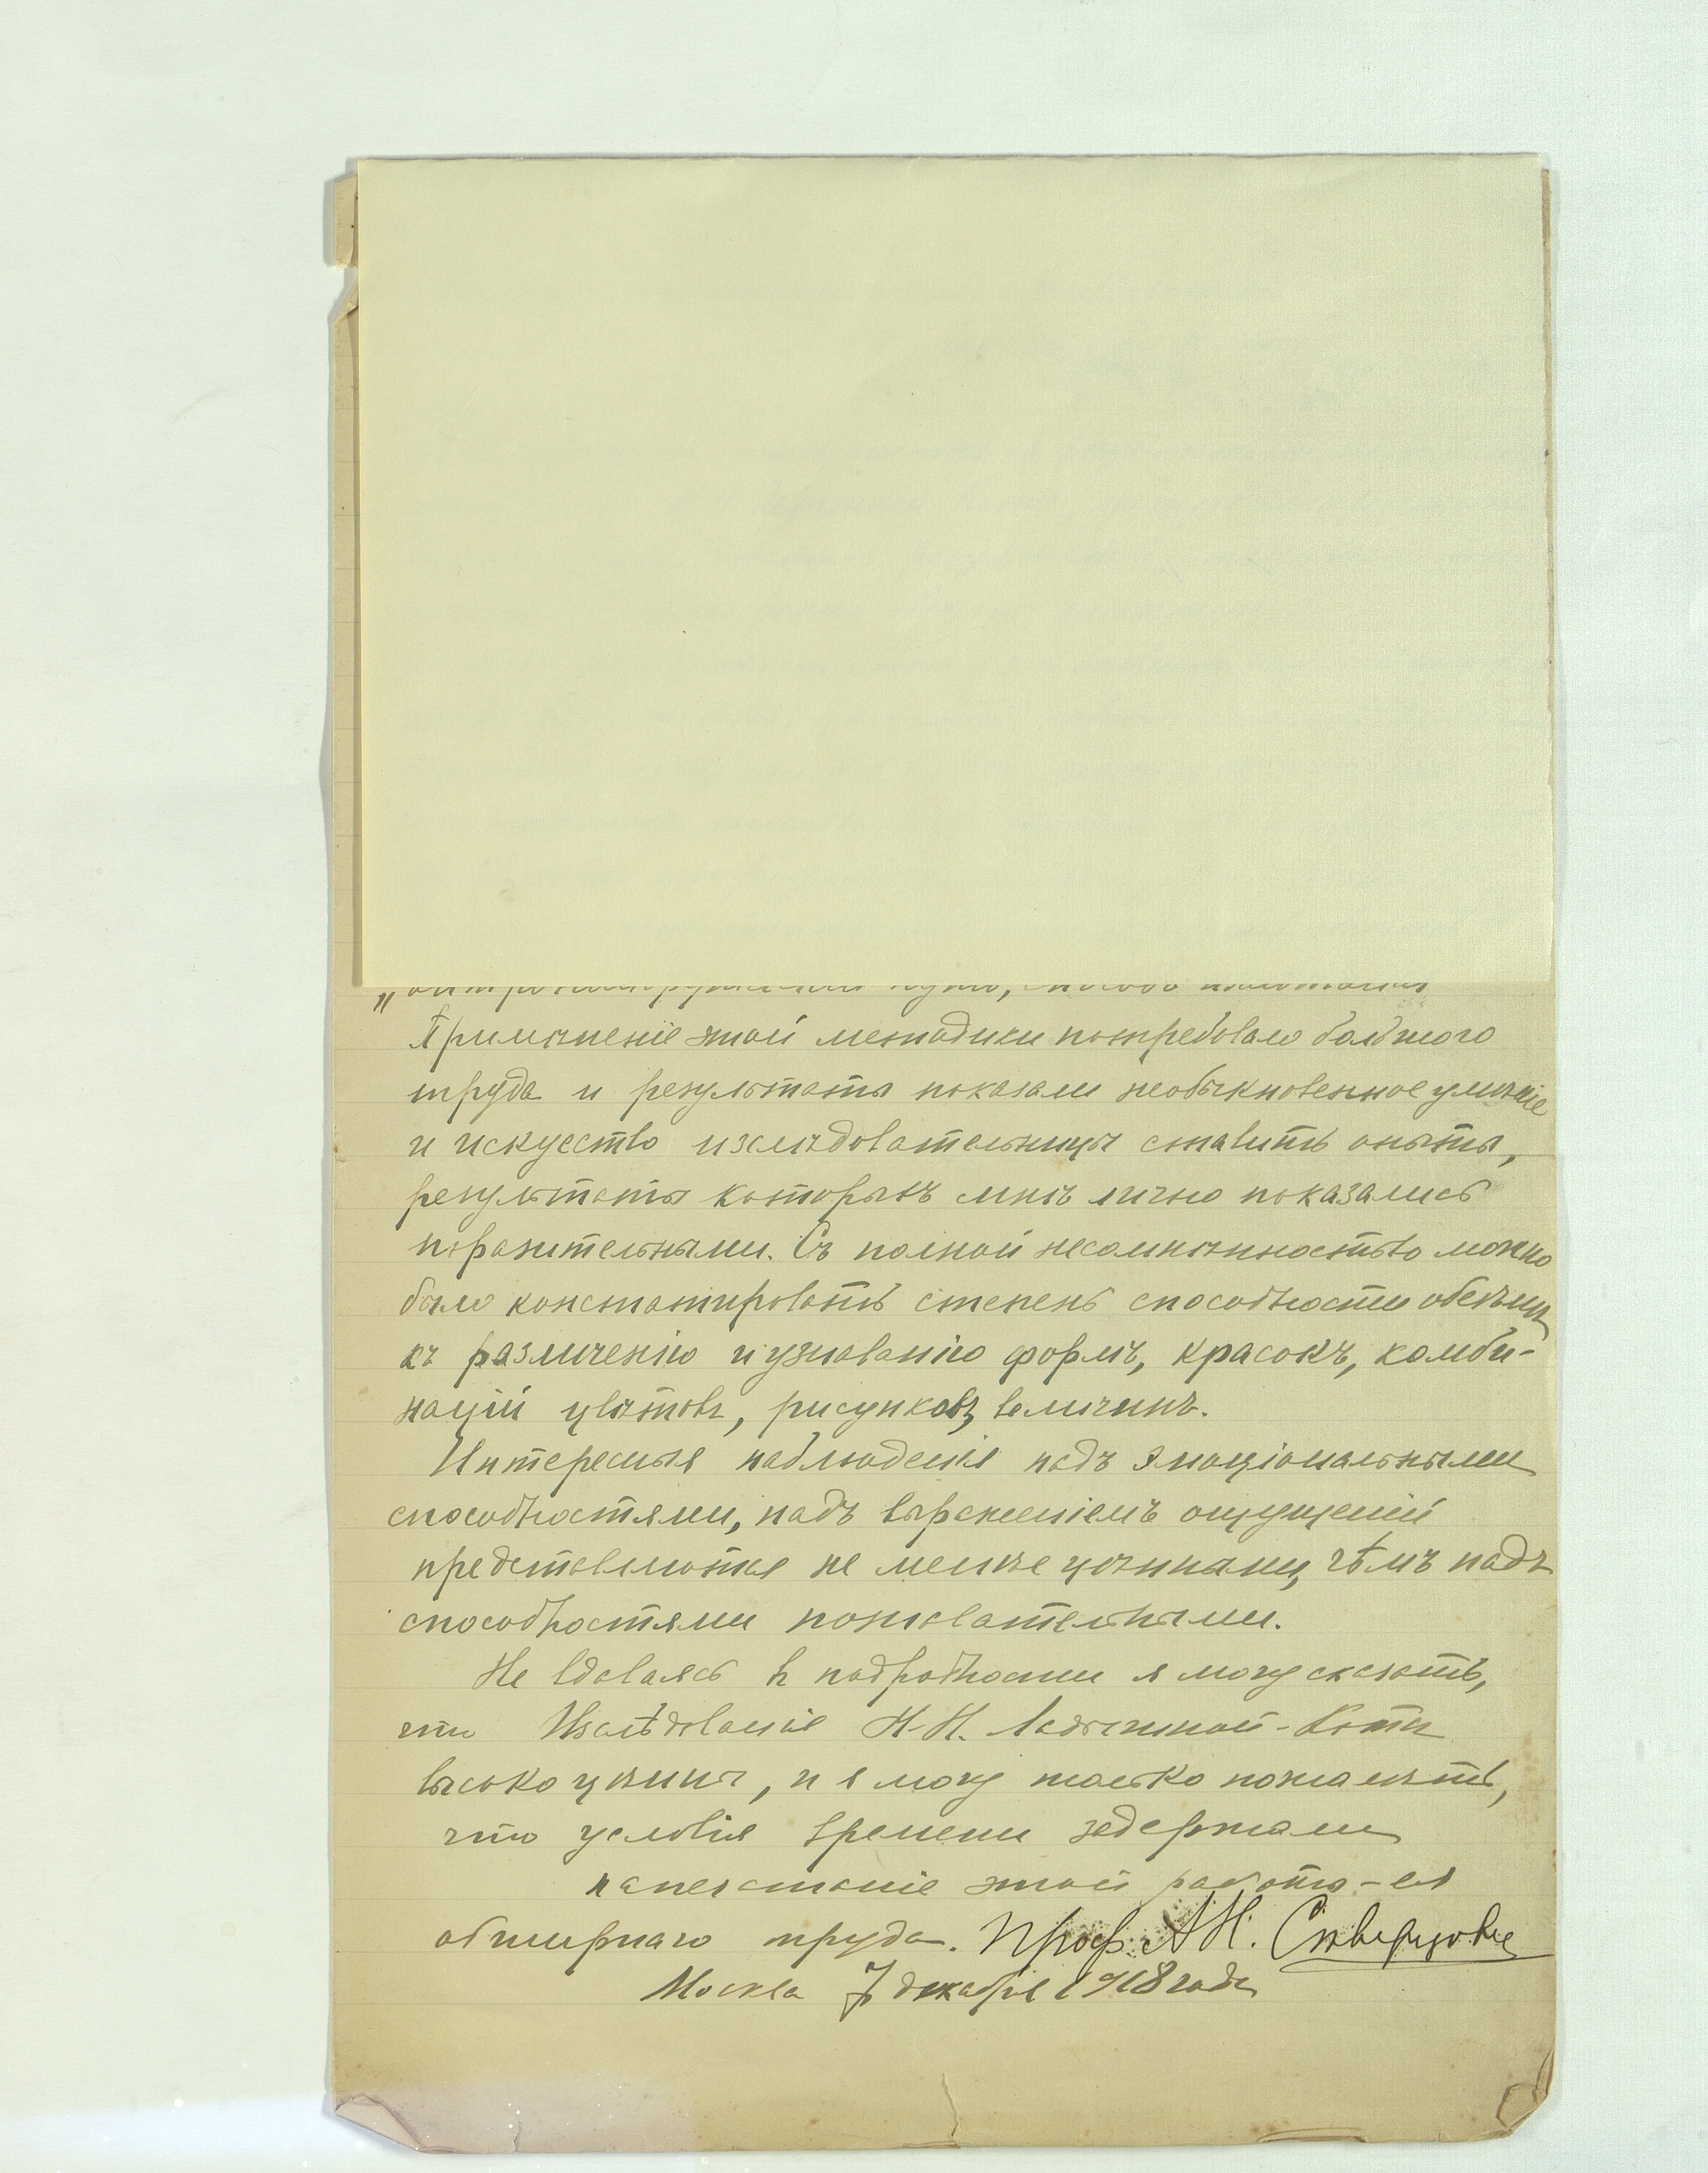 Примѣненіе этой методики потребовало большого
труда и результаты показали необыкновенное умѣніе
и искусство изслѣдовательницы ставить опыты,
результаты которыхъ мнѣ лично показались
поразительными. Съ полной несомнѣнностью можно
было констатировать степень способности обезьянъ
къ различенію и узнаванію формъ, красокъ, комби-
націй цвѣтовъ, рисунковъ, величинъ.
Интересныя наблюденія надъ эмоціональными
способностями, надъ выраженіемъ ощущеній
представляются не менѣе цѣнными, чѣмъ надъ
способностями познавательными.
Не вдаваясь в подробности я могу сказать,
что Изслѣдованіе Н.Н. Ладыгиной-Котсъ
высоко цѣнны, и я могу только пожалѣть,
что условія времени задержали
напечатаніе этой работы - ея
обширнаго труда. Проф. А Н. Сѣверцовъ
Москва 7 декабря 1918 года